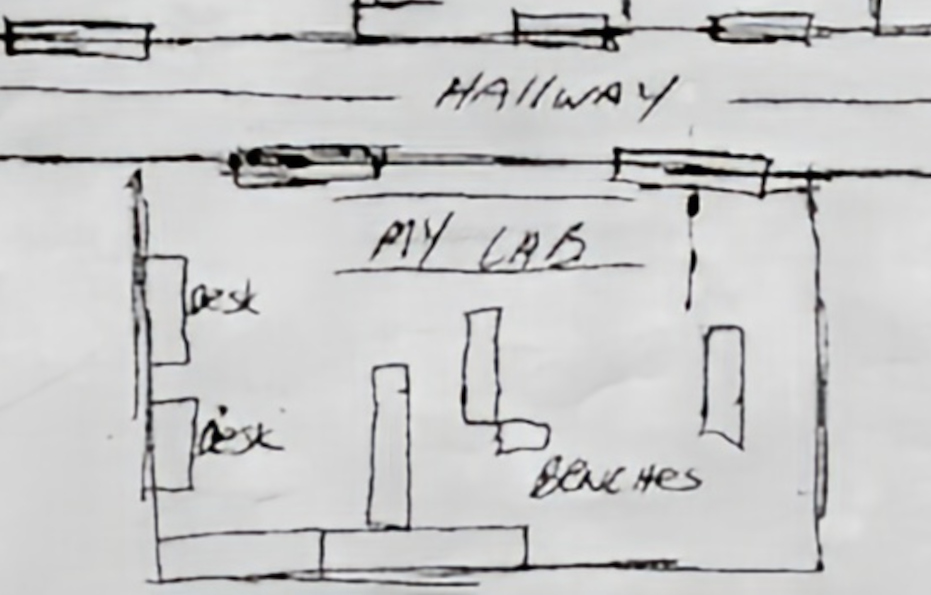 HAllWAY
MY LAB
Desk
Desk
BENCHES